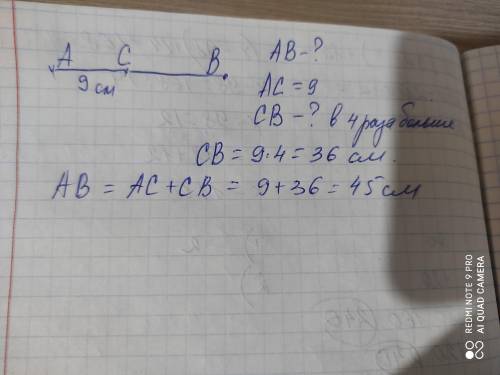 A C B
9 см
AB - ?
AC = 9
CB - ? в 4 раза больше
CB = 9 · 4 = 36 см.
AB = AC + CB = 9 + 36 = 45 см
246
REDMI NOTE 9 PRO
AI QUAD CAMERA